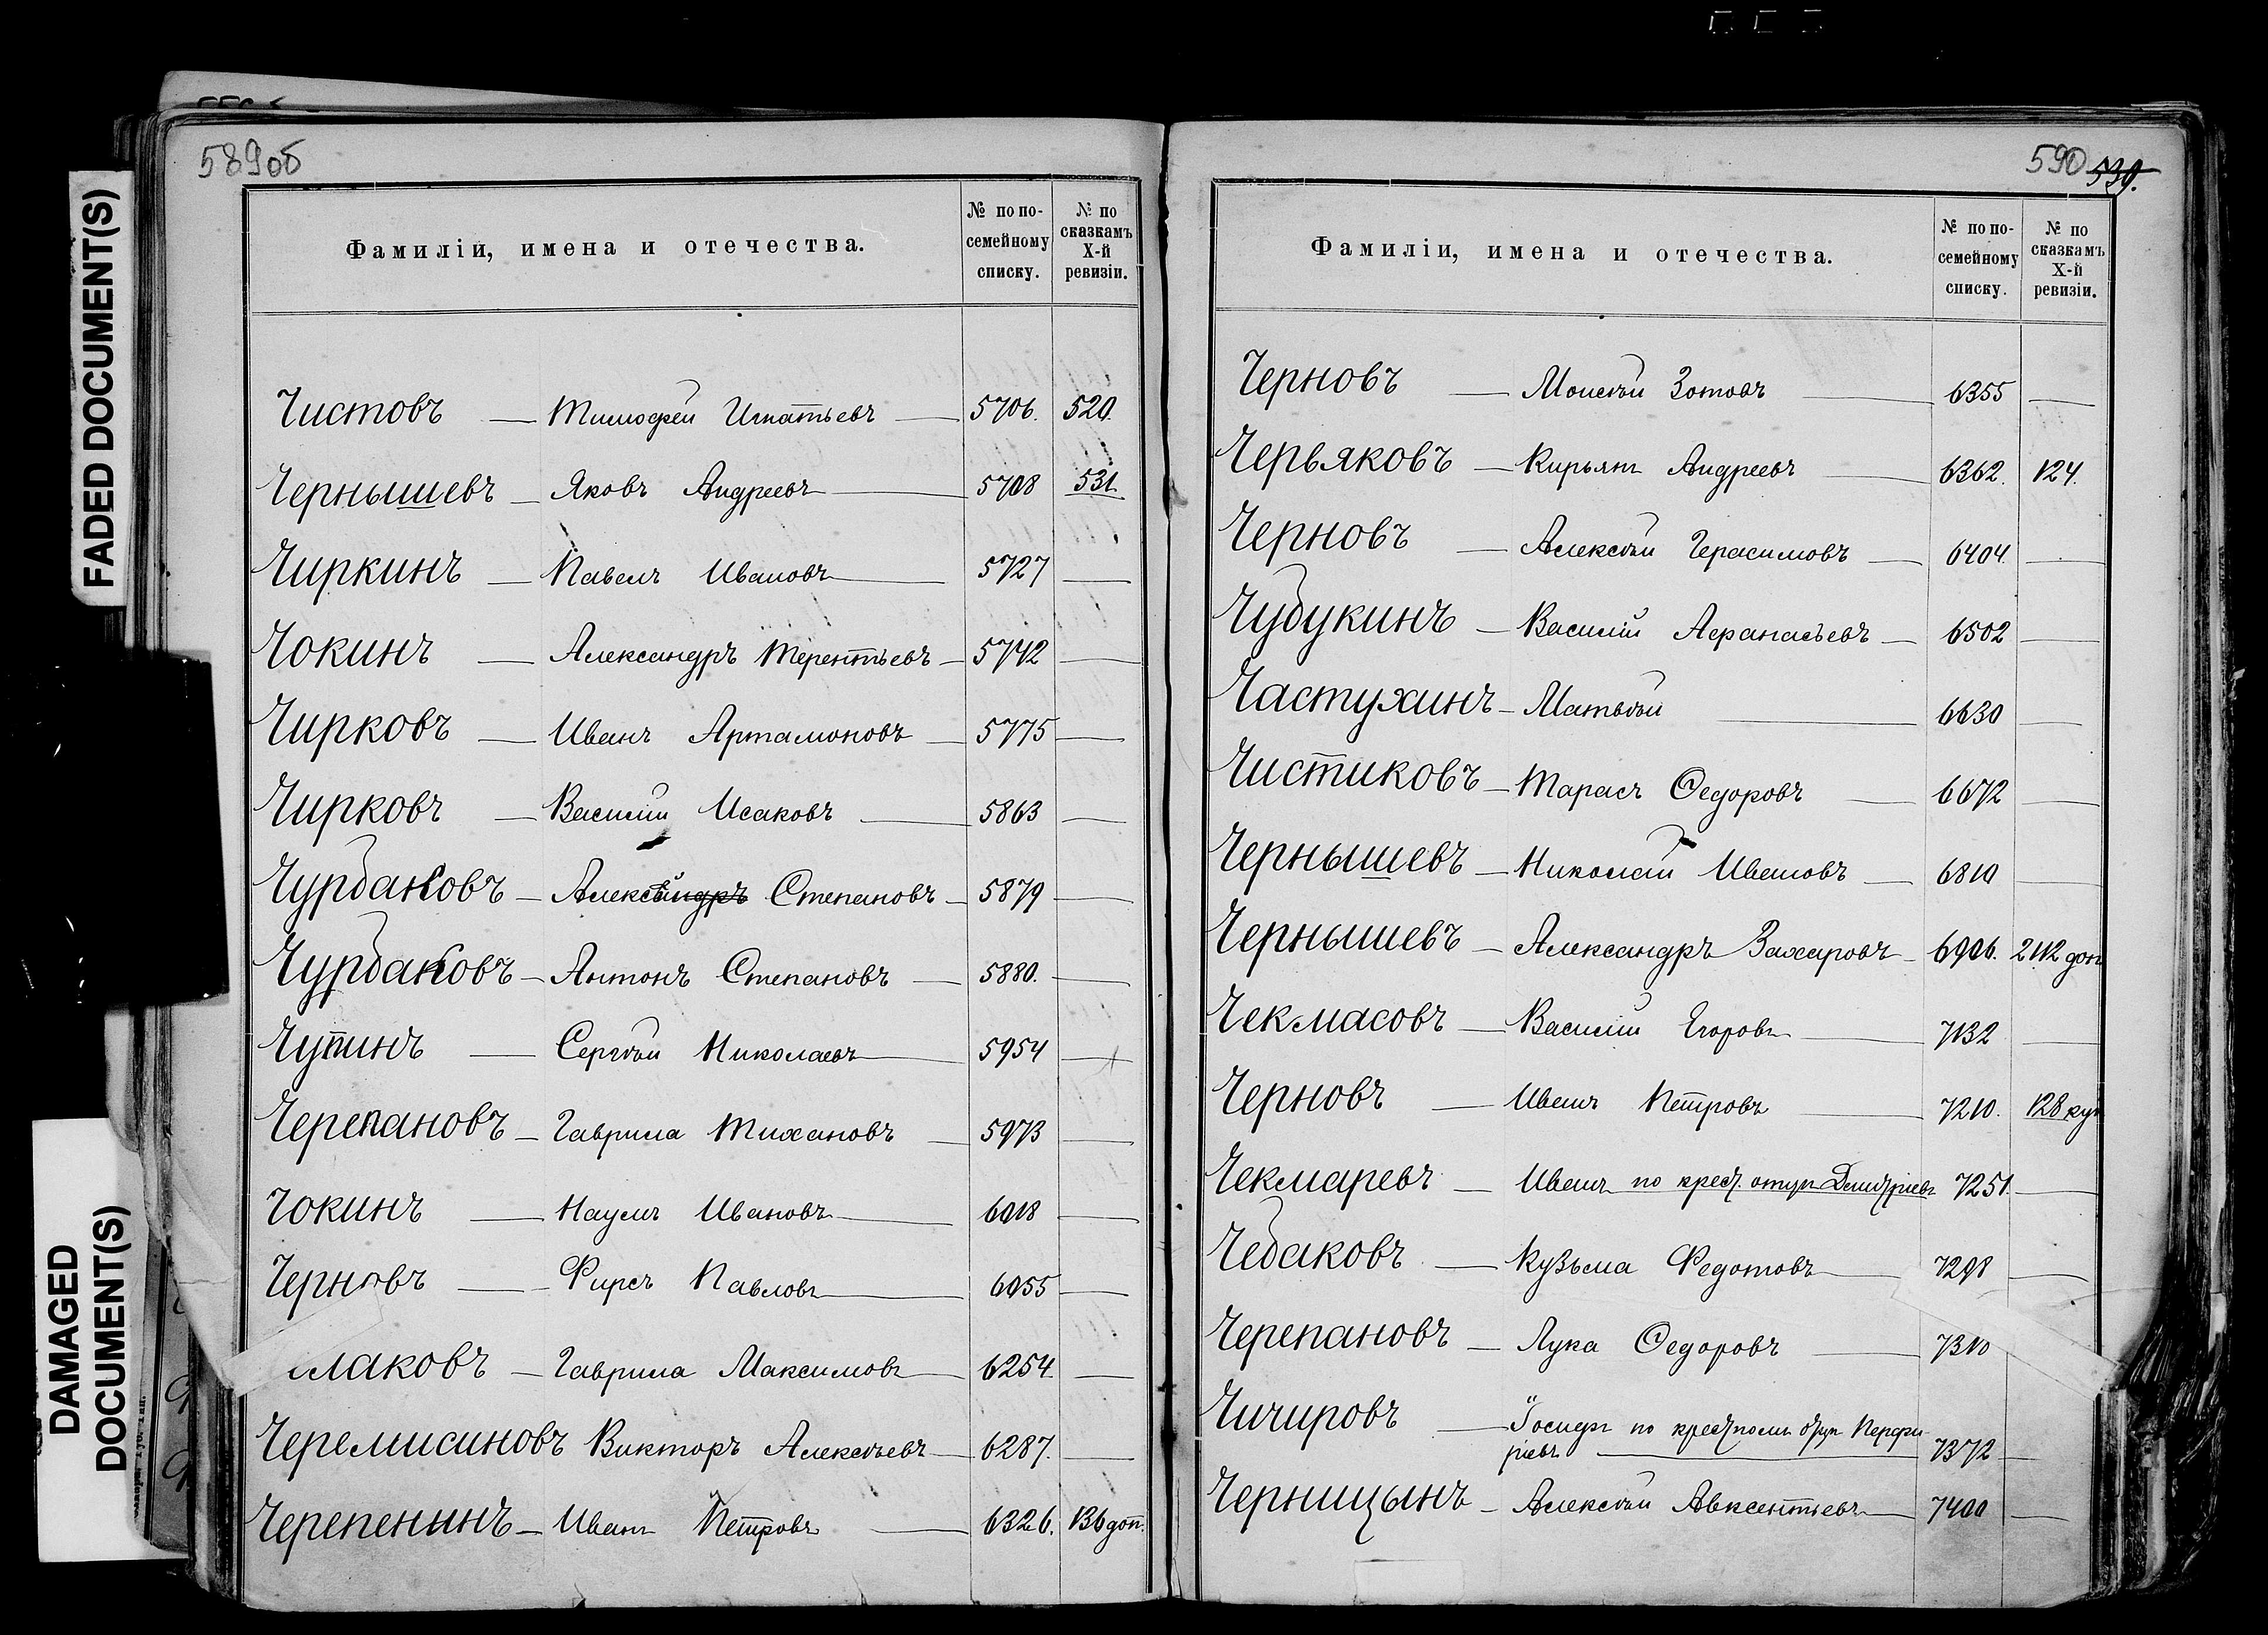 FADED DOCUMENT(S)
DAMAGED
DOCUMENT(S)
589об
Фамилій, имена и отечества.
№ по по-
семейному
списку.
№ по
сказкамъ
X-й
ревизіи.
Чистовъ — Тимофей Игнатьевъ — 5706. 520.
Чернышевъ — Яковъ Андреевъ — 5708 531.
Чиркинъ — Павелъ Ивановъ — 5727 —
Чокинъ — Александръ Терентьевъ — 5742 —
Чирковъ — Иванъ Артамоновъ — 5775 —
Чирковъ — Василій Исаковъ — 5863 —
Чурбаковъ — Алексѣй Степановъ — 5879 —
Чурбаковъ — Антонъ Степановъ — 5880. —
Чупинъ — Сергѣй Николаевъ — 5954 —
Черепановъ — Гаврила Тихановъ — 5973 —
Чокинъ — Наумъ Ивановъ — 6018 —
Черновъ — Фирсъ Павловъ — 6055 —
лаковъ — Гаврила Максимовъ — 6254 —
Черемисиновъ Викторъ Алексѣевъ — 6287. —
Черепенинъ — Иванъ Петровъ — 6326. 136 доп.
590 530.
Фамиліи, имена и отечества.
№ по по-
семейному
списку.
№ по
сказкамъ
X-й
ревизіи.
Черновъ — Моисей Зотовъ — 6355 —
Червяковъ — Кирьянъ Андреевъ — 6362. 124.
Черновъ — Алексѣй Герасимовъ — 6404. —
Чубукинъ — Василій Афанасьевъ — 6502 —
Частухинъ — Матвѣй — 6630 —
Чистиковъ — Тарасъ Ѳедоровъ — 6672 —
Чернышевъ — Николай Ивановъ — 6810 —
Чернышевъ — Александръ Захаровъ — 6906. 2112 доп
Чекмасовъ — Василій Егоровъ — 7132 —
Черновъ — Иванъ Петровъ — 7210. 128 куп
Чекмаревъ — Иванъ по крест. отцу Дмитріевъ 7251. —
Чебаковъ — Кузьма Федотовъ — 7298 —
Черепановъ — Лука Ѳедоровъ — 7310
Чичировъ — Іосифъ по крестному отцу Перфи
ріевъ — 7372 —
Черницынъ — Алексѣй Авксентьевъ — 7400 —